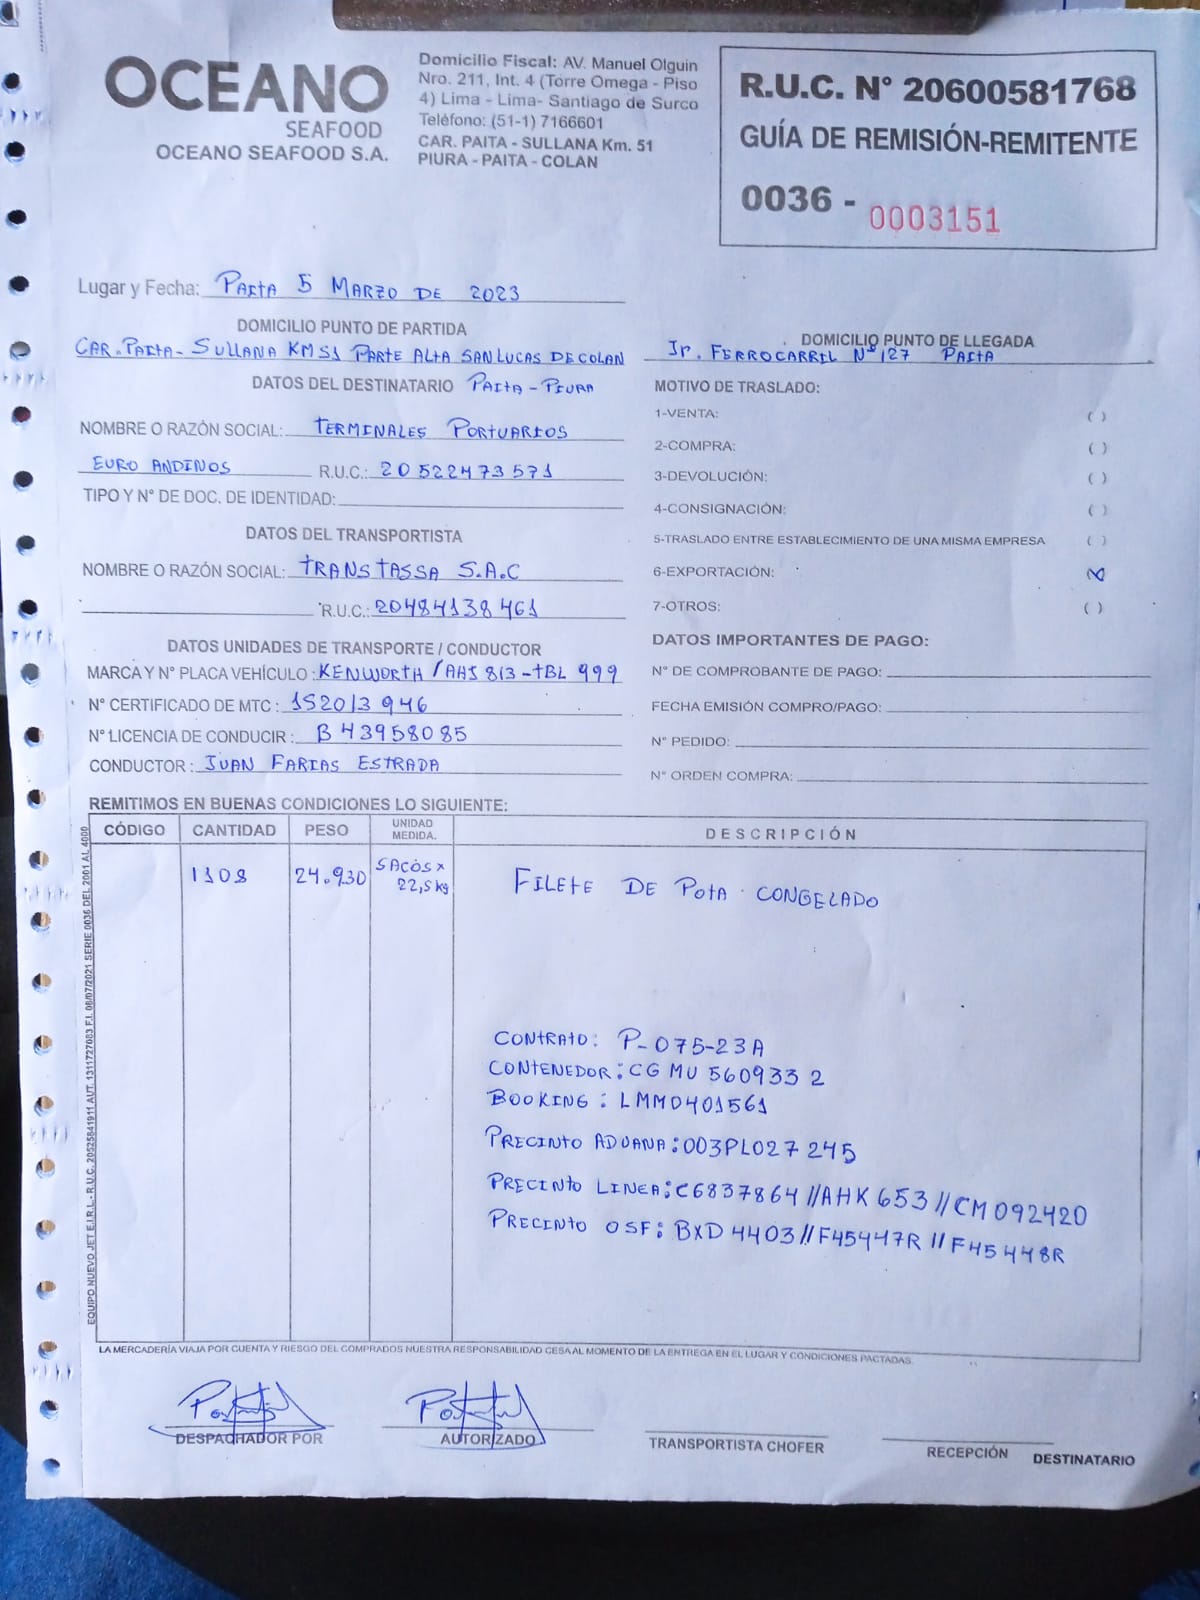 OCEANO
SEAFOOD
OCEANO SEAFOOD S.A.
Domicilio Fiscal: AV. Manuel Olguin
Nro. 211, Int. 4 (Torre Omega - Piso
4) Lima - Lima- Santiago de Surco
Teléfono: (51-1) 7166601
CAR. PAITA - SULLANA Km. 51
PIURA - PAITA - COLAN
R.U.C. N° 20600581768
GUÍA DE REMISIÓN-REMITENTE
0036 - 0003151
Lugar y Fecha: PAITA 5 MARZO DE 2023
DOMICILIO PUNTO DE PARTIDA
CAR. PAITA - SULLANA KM51 PARTE ALTA SAN LUCAS DE COLAN
DOMICILIO PUNTO DE LLEGADA
Jr. FERROCARRIL N° 127 PAITA
DATOS DEL DESTINATARIO PAITA - PIURA
NOMBRE O RAZÓN SOCIAL: TERMINALES PORTUARIOS
EURO ANDINOS R.U.C.: 20522473571
TIPO Y N° DE DOC. DE IDENTIDAD:
DATOS DEL TRANSPORTISTA
NOMBRE O RAZÓN SOCIAL: TRANSTASSA S.A.C
R.U.C.: 20484138461
DATOS UNIDADES DE TRANSPORTE / CONDUCTOR
MARCA Y N° PLACA VEHÍCULO: KENWORTH / AHJ 813 - TBL 999
N° CERTIFICADO DE MTC: 152013946
N° LICENCIA DE CONDUCIR: B43958085
CONDUCTOR: JUAN FARIAS ESTRADA
MOTIVO DE TRASLADO:
1-VENTA: ( )
2-COMPRA: ( )
3-DEVOLUCIÓN: ( )
4-CONSIGNACIÓN: ( )
5-TRASLADO ENTRE ESTABLECIMIENTO DE UNA MISMA EMPRESA ( )
6-EXPORTACIÓN: (X)
7-OTROS: ( )
DATOS IMPORTANTES DE PAGO:
N° DE COMPROBANTE DE PAGO:
FECHA EMISIÓN COMPRO/PAGO:
N° PEDIDO:
N° ORDEN COMPRA:
REMITIMOS EN BUENAS CONDICIONES LO SIGUIENTE:
CÓDIGO CANTIDAD PESO UNIDAD MEDIDA. DESCRIPCIÓN
1108 24.930 SACOS x 22,5 kg FILETE DE POTA CONGELADO
CONTRATO: P-075-23A
CONTENEDOR: CGMU 560933 2
BOOKING: LMM0401561
PRECINTO ADUANA: 003PL027245
PRECINTO LINEA: C6837864 // AHK 653 // CM092420
PRECINTO OSF: BXD 4403 // F45447R // F45448R
EQUIPO NUEVO JET E.I.R.L. - R.U.C. 20525841911 AUT. 1311727083 F.I. 06/07/2021 SERIE 0036 DEL 2001 AL 4000
LA MERCADERÍA VIAJA POR CUENTA Y RIESGO DEL COMPRADOS NUESTRA RESPONSABILIDAD CESA AL MOMENTO DE LA ENTREGA EN EL LUGAR Y CONDICIONES PACTADAS.
DESPACHADOR POR
AUTORIZADO
TRANSPORTISTA CHOFER
RECEPCIÓN DESTINATARIO